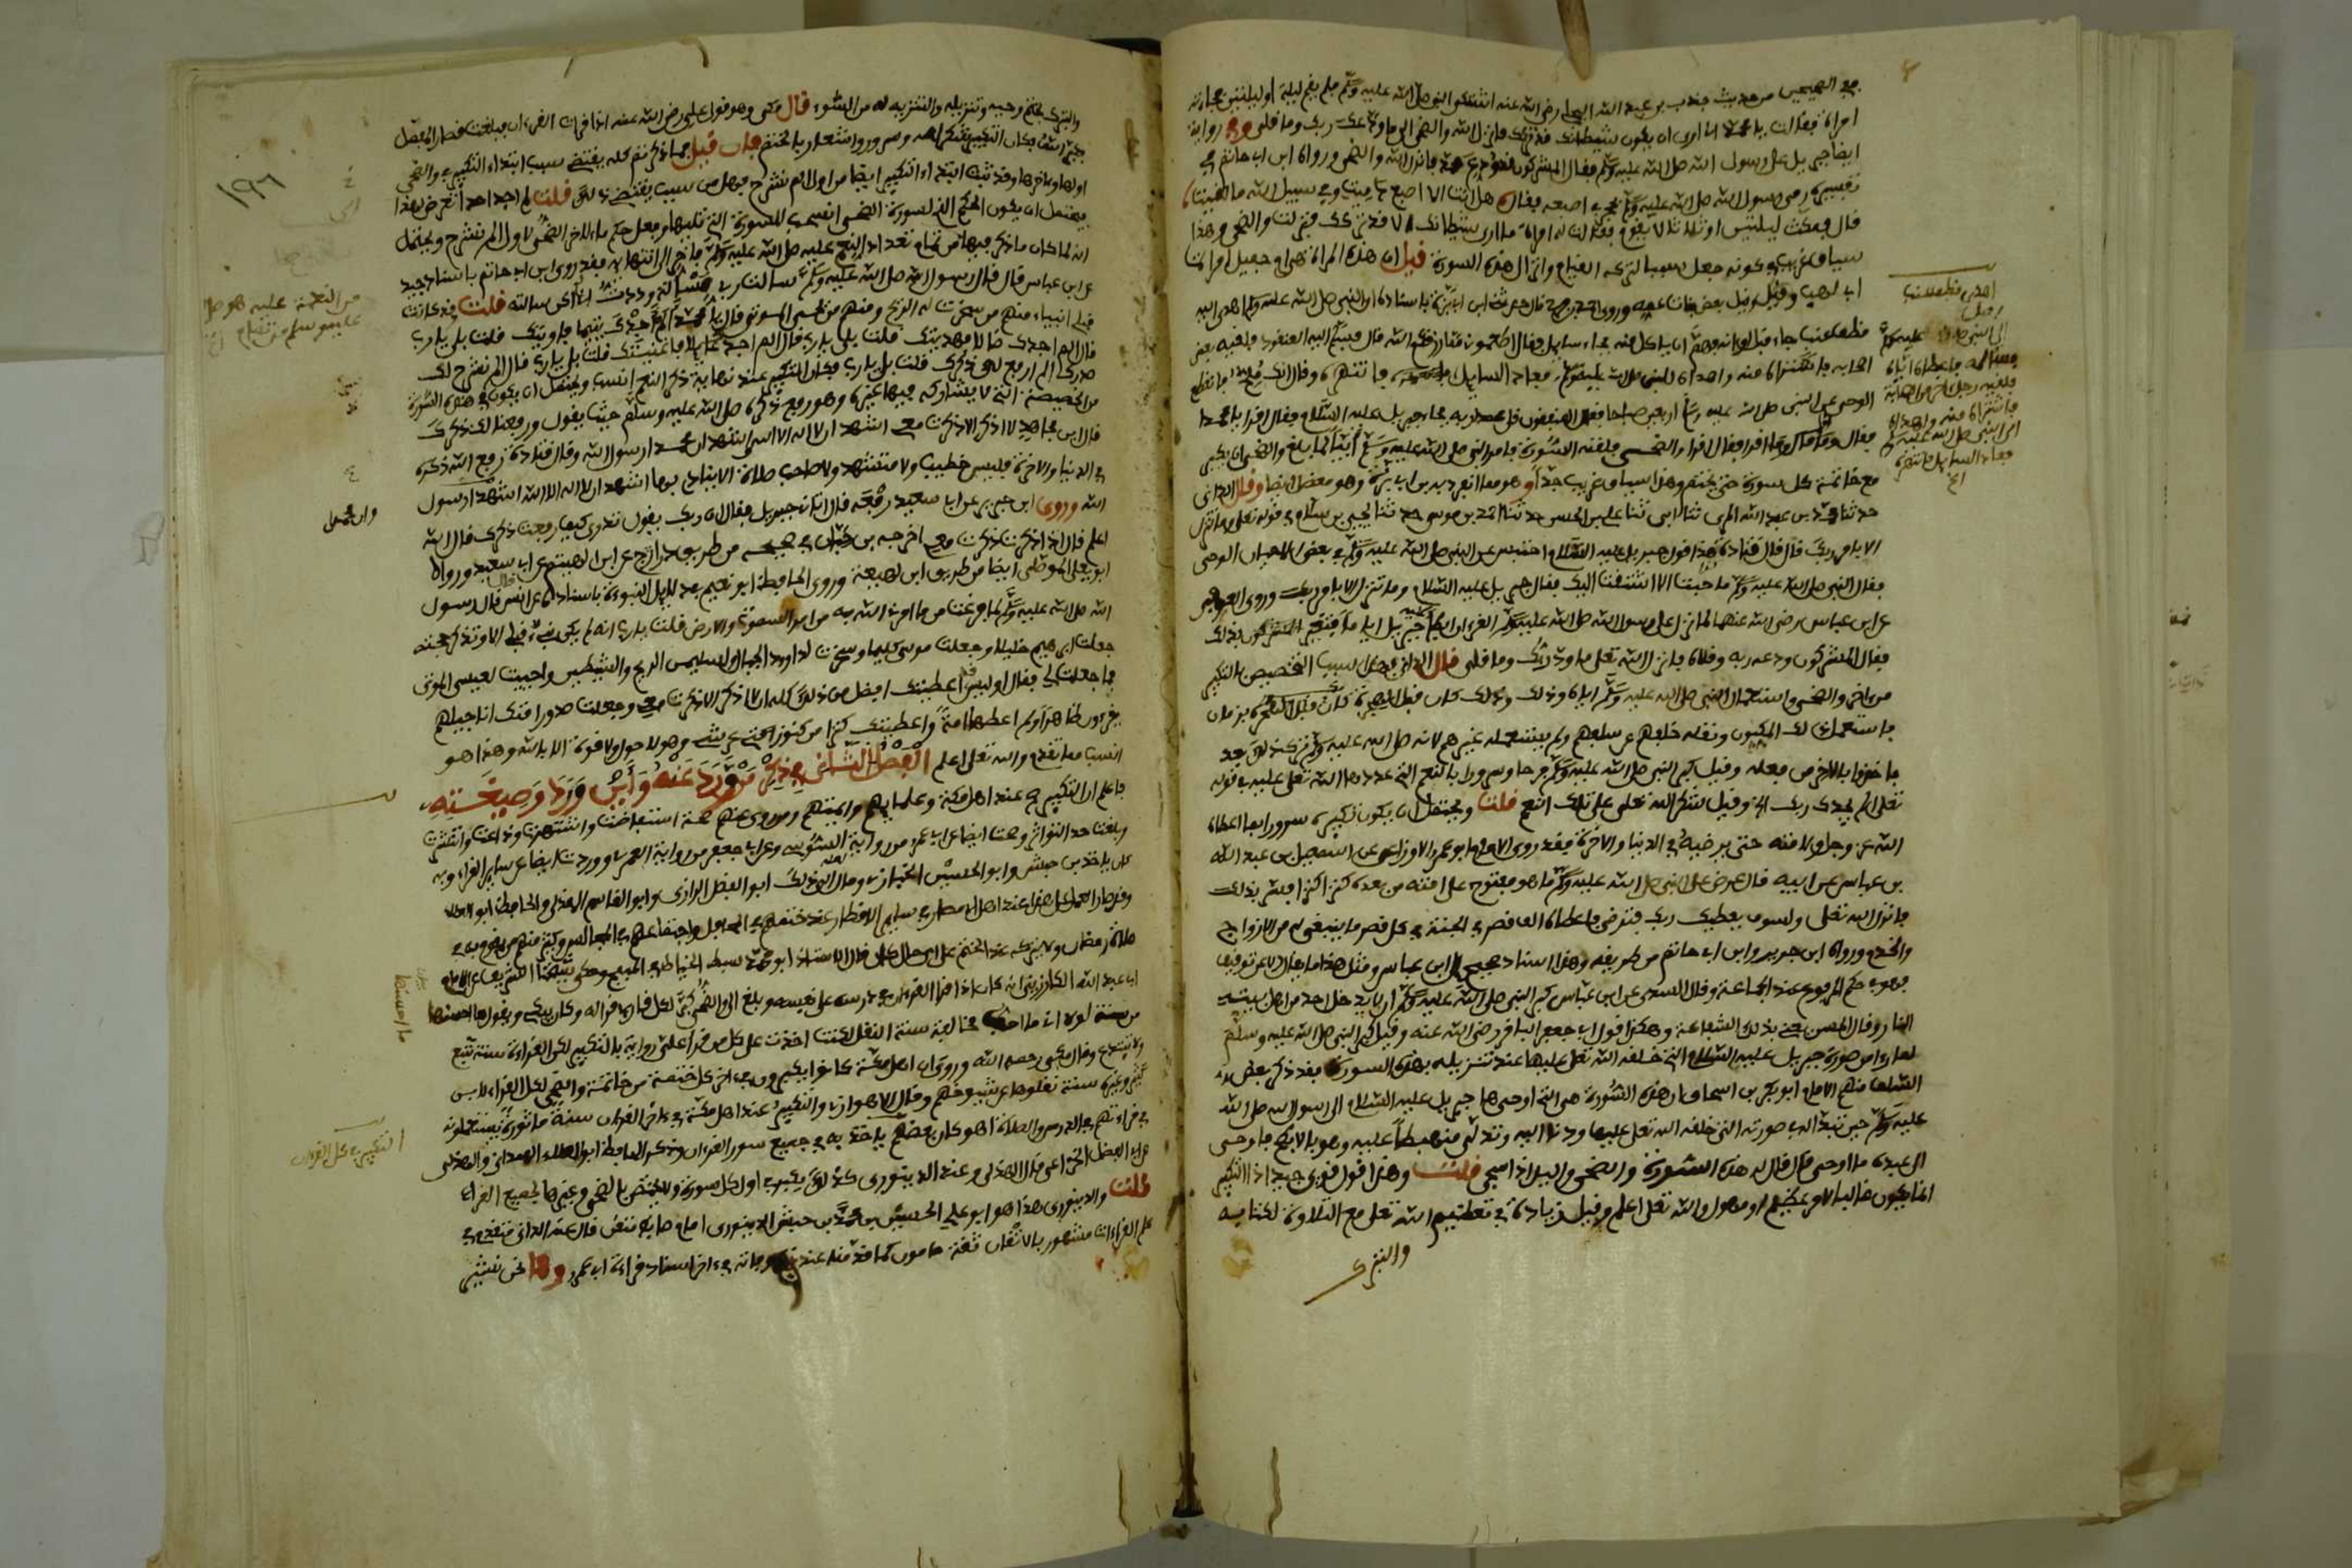 ففي الصحيحين من حديث جندب بن عبد الله البجلي رضي الله عنه اشتكى النبي صلى الله عليه وسلم فلم يقم ليلة او ليلتين فجاءته
امراة فقالت يا محمد ما ارى ان يكون شيطانك قد تركك فانزل الله والضحى الى ما ودعك ربك وما قلى وفي رواية
ايضا جبريل على رسول الله صلى الله عليه وسلم فقال المشركون قد ودع محمد فانزل الله والضحى ورواه ابن ابي حاتم في
تفسيره رمي رسول الله صلى الله عليه وسلم بحجر في اصبعه فقال هل انت الا اصبع دميت وفي سبيل الله ما لقيت
قال فمكث ليلتين او ثلاثا لا يقوم فقالت له امراة ما ارى شيطانك الا قد تركك فنزلت والضحى وهذا
سياق غريب في كونه جعل سببا لتركه القيام وانزال هذه السورة قيل ان هذه المراة هي ام جميل امراة
ابي لهب وقيل بعض بنات عمه وروى احمد بن فرح قال حدثني ابن ابي بزة باسناده ان النبي صلى الله عليه وسلم اهدي اليه
قطف عنب جاء قبل اوانه فهم ان ياكل منه فجاءه سايل فقال اطعموني مما رزقكم الله قال فسلم اليه العنقود فلقيه بعض
اصحابه فاشتراه منه واهداه للنبي صلى الله عليه وسلم فعاد السايل فانتهره وقال انك ملح فانقطع
الوحي عن النبي صلى الله عليه وسلم اربعين صباحا فقال المنافقون قلى محمدا ربه فجاء جبريل عليه السلام فقال اقرا يا محمد
فقال وما اقرا فقال اقرا والضحى ولقنه السورة فامر النبي صلى الله عليه وسلم ابيا لما بلغ والضحى ان يكبر
مع خاتمة كل سورة حتى يختم وهذا سياق غريب جدا وهو مما انفرد به ابن ابي بزة وهو معضل ايضا وقال الداني
حدثنا محمد بن عبد الله المري ثنا ابي ثنا علي بن الحسن حدثنا احمد بن موسى حدثنا يحيى بن سلام في قوله تعلى وما نتنزل
الا بامر ربك قال قال قتادة هذا قول جبريل عليه السلام احتبس عن النبي صلى الله عليه وسلم في بعض الاحيان الوحي
فقال النبي صلى الله عليه وسلم ما جيت الا اشتقت اليك فقال جبريل عليه السلام وما نتنزل الا بامر ربك وروى العوفي
عن ابن عباس رضي الله عنهما لما نزل على رسول الله صلى الله عليه وسلم القرءان ابطا عنه جبريل اياما فتغير بذلك
فقال المشركون ودعه ربه وقلاه فانزل الله تعلى ما ودعك ربك وما قلى قال الداني فهذا سبب التخصيص بالتكبير
من ءاخر والضحى واستعمال النبي صلى الله عليه وسلم اياه وذلك كان قبل الهجرة بزمان
فاستعمل ذلك المكيون ونقله خلفهم عن سلفهم ولم يستعمله غيرهم لانه صلى الله عليه وسلم ترك ذلك بعد
فاخذوا بالاخر من فعله وقيل كبر النبي صلى الله عليه وسلم فرحا وسرورا بالنعم التي عددها الله تعلى عليه في قوله
تعلى الم يجدك ربك الخ وقيل شكرا لله تعلى على تلك النعم قلت ويحتمل ان يكون تكبيره سرورا بما اعطاه
الله عز وجل ولامته حتى يرضيه في الدنيا والاخرة فقد روى الامام ابو عمرو الاوزاعي عن اسمعيل بن عبد الله
بن عباس عن ابيه قال عرض على النبي صلى الله عليه وسلم ما هو مفتوح على امته من بعده كنزا كنزا فسر بذلك
فانزل الله تعلى ولسوف يعطيك ربك فترضى فاعطاه الف قصر في الجنة في كل قصر ما ينبغي له من الازواج
والخدم ورواه ابن جرير وابن ابي حاتم من طريقه وهذا اسناد صحيح الى ابن عباس ومثل هذا ما يقال الا عن توقيف
فهو في حكم المرفوع عند الجماعة وقال السدي عن ابن عباس كبر النبي صلى الله عليه وسلم ان لا يدخل احد من اهل بيته
النار وقال الحسن يعني بذلك الشفاعة وهكذا قول ابي جعفر الباقر رضي الله عنه وقيل كبر النبي صلى الله عليه وسلم
لما راى من صورة جبريل عليه السلام التي خلقه الله تعلى عليها عند تنزيله بهذه السورة فقد ذكر بعض
السلف منهم الامام ابو بكر بن اسحاق ان هذه السورة هي التي اوحاها جبريل عليه السلام الى رسول الله صلى الله
عليه وسلم حين تبدا له في صورته التي خلقه الله تعلى عليها ودنا اليه وتدلى منهبطا عليه وهو بالابطح فاوحى
الى عبده ما اوحى قال قال له هذه السورة والضحى واليل اذا سجى قلت وهذا قول قوي جيد اذ التكبير
انما يكون غالبا لامر عظيم او مهول والله تعلى اعلم وقيل زيادة في تعظيم الله تعلى مع التلاوة لكتابه
والتبرك
والتبرك بختم وحيه وتنزيله والتنزيه له من السوء قال مكي وهو قول علي رضي الله عنه اذا قرات القرءان فبلغت قصار المفصل
فكبر الله فكان التكبير شكرا لله وسرورا واشعارا بالختم فان قيل فما ذكرتم كله يقتضي سبب ابتداء التكبير في والضحى
اولها وءاخرها وقد ثبت ابتداء التكبير ايضا من اول الم نشرح فهل من سبب يقتضي ذلك قلت لم اجد احدا تعرض لهذا
فيحتمل ان يكون الحكم الذي لسورة الضحى انسحب للسورة التي تليها وجعل حكم ما لاخر الضحى لاول الم نشرح ويحتمل
انه لما كان ما ذكر فيها من تمام تعداد النعم عليه صلى الله عليه وسلم فاخر الى انتهايه فقد روى ابن ابي حاتم باسناد جيد
عن ابن عباس قال قال رسول الله صلى الله عليه وسلم سالت ربي مسالة وددت اني لم اكن سالته قلت قد كانت
قبلي انبياء منهم من سخرت له الريح ومنهم من يحيي الموتى قال يا محمد الم اجدك يتيما فاويتك قلت بلى يا رب
قال الم اجدك ضالا فهديتك قلت بلى يا رب قال الم اجدك عايلا فاغنيتك قلت بلى يا رب قال الم نشرح لك
صدرك الم ارفع لك ذكرك قلت بلى يا رب فكان التكبير عند نهاية ذكر النعم انسب ويحتمل ان يكون في هذه السورة
من الخصيصة التي لا يشاركه فيها غيره وهو رفع ذكره صلى الله عليه وسلم حيث يقول ورفعنا لك ذكرك
قال ابن مجاهد لا اذكر الا ذكرت معي اشهد ان لا اله الا الله اشهد ان محمدا رسول الله وقال قتادة رفع الله ذكره
في الدنيا والاخرة فليس خطيب ولا متشهد ولا صاحب صلاة الا ينادي بها اشهد ان لا اله الا الله اشهد ان محمدا رسول
الله وروى ابن جرير عن ابي سعيد رفعه قال اتاني جبريل فقال ان ربك يقول تدري كيف رفعت ذكرك قال الله
اعلم قال اذا ذكرت ذكرت معي اخرجه بن حبان في صحيحه من طريق دراج عن ابي الهيثم عن ابي سعيد ورواه
ابو يعلى الموصلي ايضا من طريق ابن لهيعة وروى الحافظ ابو نعيم في دلايل النبوءة باسناده عن انس قال قال رسول
الله صلى الله عليه وسلم لما فرغت من ما امرني الله به من امر السموات والارض قلت يا رب انه لم يكن نبي قبلي الا وقد كرمته
جعلت ابرهيم خليلا وجعلت موسى كليما وسخرت لداوود الجبال ولسليمن الريح والشيطين واحييت لعيسى الموتى
فما جعلت لي فقال او ليس قد اعطيتك افضل من ذلك كله ان لا اذكر الا ذكرت معي وجعلت صدور امتك اناجيلهم
يقرءون ظاهرا ولم اعطها امة واعطيتك كنزا من كنوز تحت عرشي وهو لا حول ولا قوة الا بالله وهذا هو
انسب مما تقدم والله تعلى اعلم الفصل الثاني في ذكر من ورد عنه واين ورد وصيغته
فاعلم ان التكبير صح عند اهل مكة وعلمايهم وايمتهم ومن روى عنهم صحة استفاضت واشتهرت وذاعت وانتشرت
وبلغت حد التواتر وصحت ايضا عن ابي عمرو من رواية السوسي وعن ابي جعفر من رواية العمري ووردت ايضا عن ساير القراء وبه
كان ياخذ بن حبش وابو الحسين الخبازي وحكى ذلك ابو الفضل الرازي وابو القاسم الهذلي والحافظ ابو العلاء
وقد صار العمل على هذا عند اهل الامصار في ساير الاقطار عند ختمهم في المحافل واجتماعهم في المجالس وكثير منهم يقوم به في
صلاة رمضان ولا يتركه عند الختم على اي حال كان قال الاستاذ ابو محمد سبط الخياط في المبهج وحكى شيخنا الشريف عن الامام
ابي عبد الله الكارزيني انه كان اذا قرا القرءان في درسه على نفسه وبلغ الى والضحى كبر لكل قارئ قرا له وكان يبكي ويقول ما احسنها
من سنة لولا اني ما احب مخالفة سنة النقل لكنت اخذت على كل من قرا علي برواية بالتكبير لكن القراءة سنة تتبع
ولا تبتدع وقال مكي رحمه الله وروي ان اهل مكة كانوا يكبرون في ءاخر كل ختمة من خاتمة والضحى لكل القراء لابن
كثير وغيره سنة نقلوها عن شيوخهم وقال الاهوازي والتكبير عند اهل مكة في ءاخر القرءان سنة ماثورة يستعملونه
في قراءتهم في الدرس والصلاة اهـ وكان بعضهم ياخذ به في جميع سور القرءان وذكره الحافظ ابو العلاء الهمداني والهذلي
عن ابي الفضل الخزاعي قال الهذلي وعند الدينوري كذلك يكبر في اول كل سورة ولا يختص بالضحى وغيرها لجميع القراء
قلت والدينوري هذا هو ابو علي الحسين بن محمد بن حبش الدينوري امام ضابط متقن قال عنه الداني متقدم في
علم القراءات مشهور بالاتقان ثقة مامون كما قدمنا عند وفاته في ءاخر اسناد قراءة ابي عمرو وها نحن نشير
١٩٦
التكبير في كل القرءان
ما احسنها